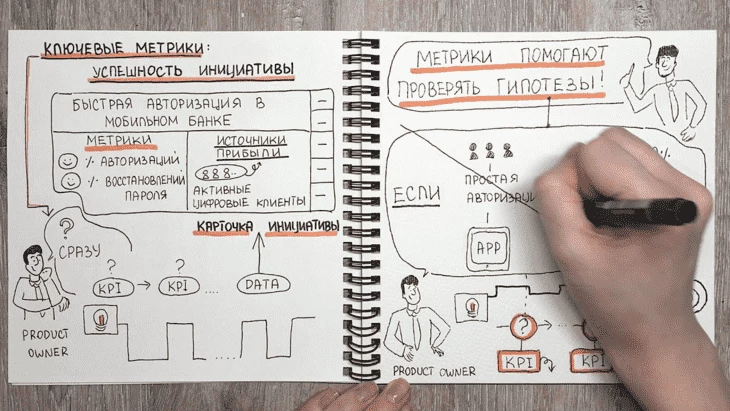 КЛЮЧЕВЫЕ МЕТРИКИ:
УСПЕШНОСТЬ ИНИЦИАТИВЫ
БЫСТРАЯ АВТОРИЗАЦИЯ В
МОБИЛЬНОМ БАНКЕ
МЕТРИКИ
% АВТОРИЗАЦИЙ
% ВОССТАНОВЛЕНИЙ
ПАРОЛЯ
ИСТОЧНИКИ
ПРИБЫЛИ
АКТИВНЫЕ
ЦИФРОВЫЕ КЛИЕНТЫ
КАРТОЧКА ИНИЦИАТИВЫ
?
СРАЗУ
? ?
KPI → KPI .... DATA
PRODUCT
OWNER
МЕТРИКИ ПОМОГАЮТ
ПРОВЕРЯТЬ ГИПОТЕЗЫ!
ЕСЛИ
ПРОСТАЯ
APP
?
KPI KPI
PRODUCT OWNER